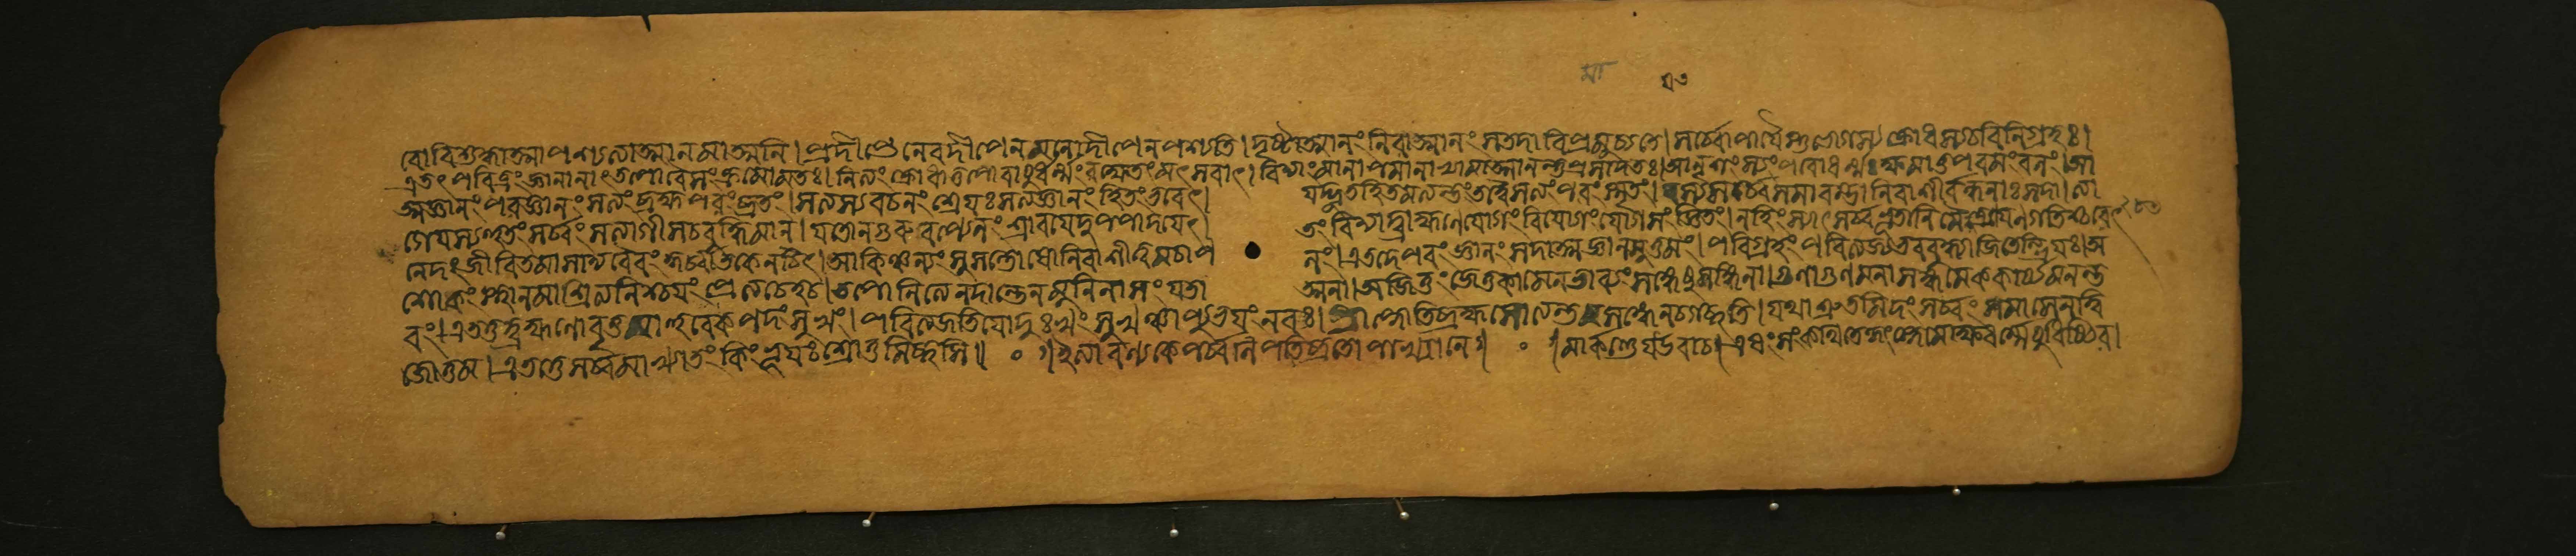 মা ২৩
বো বিশুদ্ধাত্মা পশ্যত্যাত্মানমাত্মনি। প্রদীপ্তেনেব দীপেন মনোদীপেন পশ্যতি। দৃষ্ট্বাত্মানং নিরাত্মানং স তদা বিপ্রমুচ্যতে। সর্ব্বোপায়ৈস্তু লোভস্য ক্রোধস্য চ বিনিগ্রহঃ।
এতৎ পবিত্রং জ্ঞানানাং তপো বৈ সংক্রমো মতঃ। নিত্যং ক্রোধাত্তপো রক্ষেত মৎসরাৎ। বিদ্যাং মানাপমানাভ্যামাত্মানন্তু প্রমাদতঃ। আনৃশংস্যং পরো ধর্ম্মঃ ক্ষমা চ পরমং বলং। আ
ত্মজ্ঞানং পরং জ্ঞানং সত্যং ব্রতপরং ব্রতং। সত্যস্য বচনং শ্রেয়ঃ সত্যজ্ঞানং হিতং ভবেৎ। যদ্ভূতহিতমত্যন্তং তদ্বৈ সত্যং পরং মতং। যস্য সর্ব্বে সমারম্ভা নিরাশীর্বন্ধনাঃ সদা। ত্যা
গে যস্য হুতং সর্ব্বং স ত্যাগী স চ বুদ্ধিমান্। যতো ন গুরুরপ্যেনং শ্রাবয়েদুপপাদয়েৎ। তং বিদ্যাদ্ব্রহ্মণো যোগং বিয়োগং যোগসংজ্ঞিতং। ন হিংস্যাৎ সর্ব্বভূতানি মৈত্রায়ণগতিশ্চরেৎ
নেদং জীবিতমাসাদ্য বৈরং কুর্ব্বীত কেনচিৎ। আকিঞ্চন্যং সুসন্তোষো নিরাশীত্বমচাপ লং। এতদেব পরং জ্ঞানং সদাত্মজ্ঞানমুত্তমং। পরিগ্রহং পরিত্যজ্য ভব বুদ্ধ্যা জিতেন্দ্রিয়ঃ। অ
শোকং স্থানমাশ্রিত্য নিশ্চয়ং প্রেত্য চেহ চ। তপোনিত্যেন দান্তেন মুনিনা সংযতা ত্মনা। অজিতং জেতুকামেন ভাব্যং সঙ্গেষ্বসঙ্গিনা। গুণাগুণমনাসঙ্গমেককার্য্যমনন্ত
রং। এতত্তু ব্রহ্মণো বৃত্তমাহুরেকপদং সুখং। পরিত্যজতি যো দুঃখং সুখঞ্চাপ্যুভয়ং নরঃ। প্রাপ্নোতি ব্রহ্ম সোত্যন্তমসঙ্গেন চ গচ্ছতি। যথাশ্রুতমিদং সর্ব্বং সমাসেন দ্বি
জোত্তম। এতত্তে সর্ব্বমাখ্যাতং কিং ভূয়ঃ শ্রোতুমিচ্ছসি॥ ০। ইত্যারণ্যকে পর্ব্বনি পতিব্রতোপাখ্যানে। ০। মার্কণ্ডেয় উবাচ। এবং সংকথিতে কৃৎস্নে মোক্ষধর্ম্মে যুধিষ্ঠির।